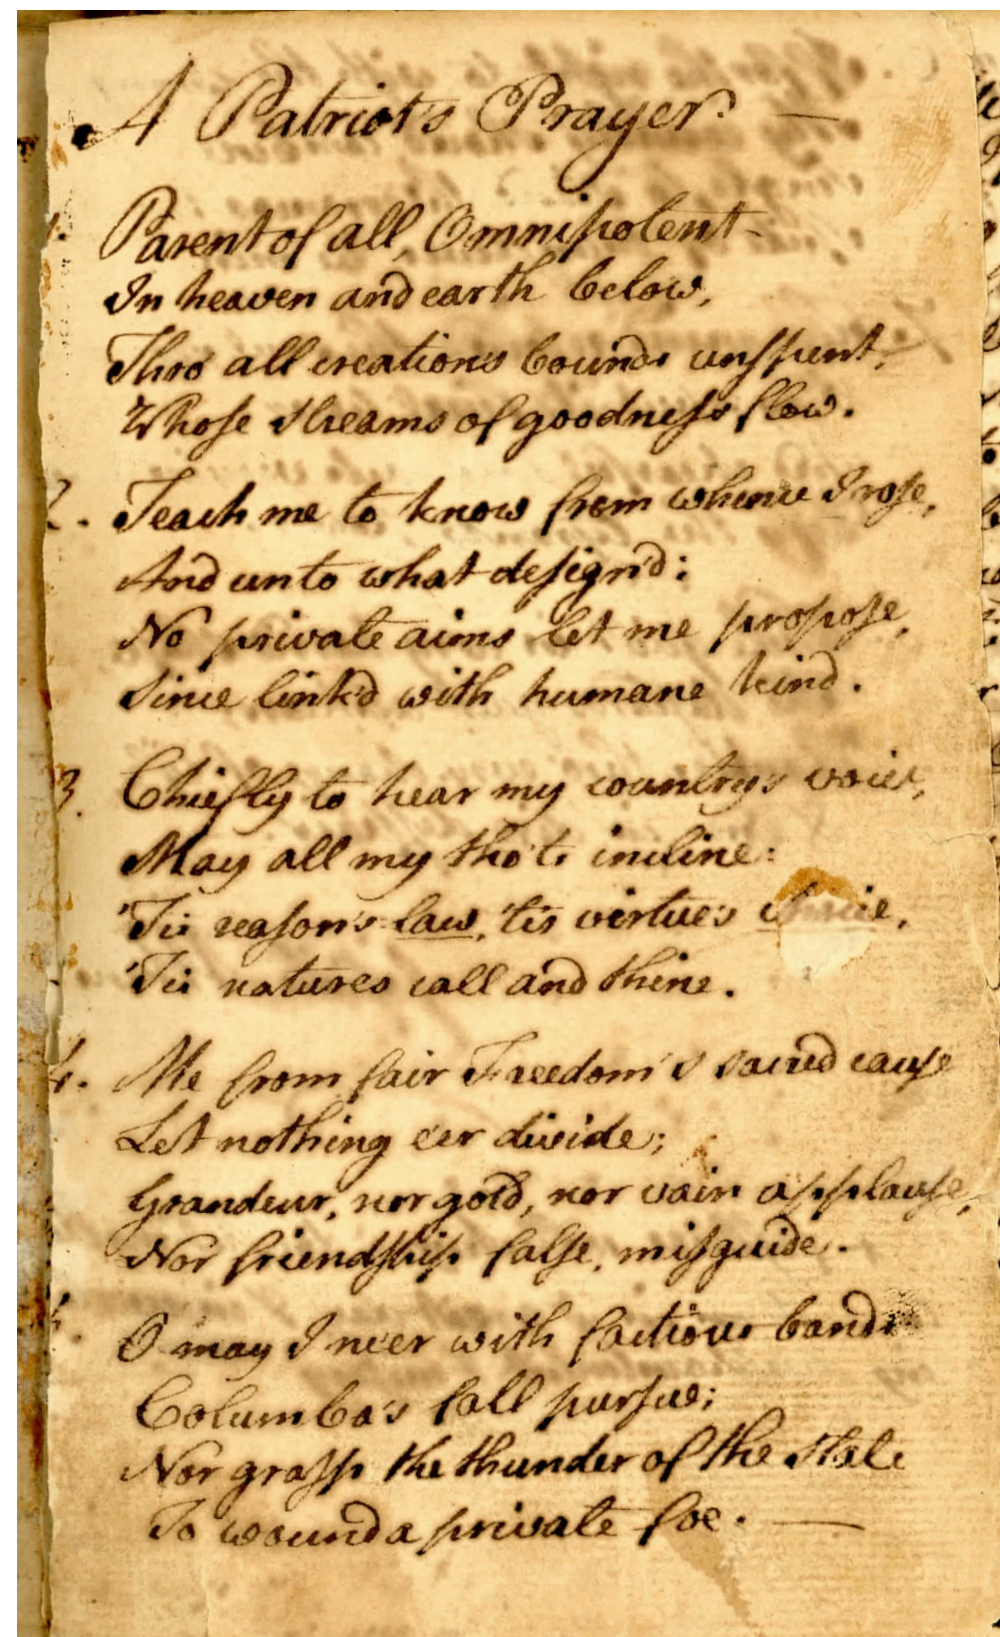 A Patriot's Prayer.
1. Parent of all, Omnipotent
In heaven and earth below,
Thro' all creation's bounds unspent,
Whose streams of goodness flow.
2. Teach me to know from whence I rose,
And unto what design'd;
No private aims let me propose,
Since link'd with humane kind.
3. Chiefly to hear my country's voice,
May all my tho'ts incline:
'Tis reason's law, 'tis virtue's choice,
'Tis natures call and thine.
4. Me from fair Freedom's sacred cause
Let nothing e'er divide;
Grandeur, nor gold, nor vain applause,
Nor friendship false, misguide.
O may I ne'er with factious bands
Columba's fall pursue;
Nor grasp the thunder of the state
To wound a private foe.